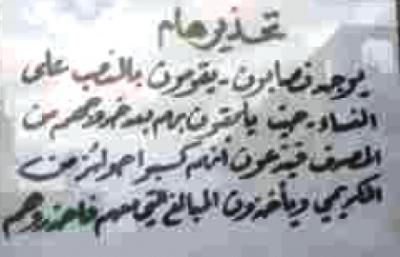 تحذير هام
يوجد نصابون - يقومون بالنصب على
النساء - حيث يلحقون بهم بعد خروجهم من
المصرف فيدعون أنهم كسبوا جوائز من
الكريمي ويأخذون المبالغ التي معهم فاحذروهم